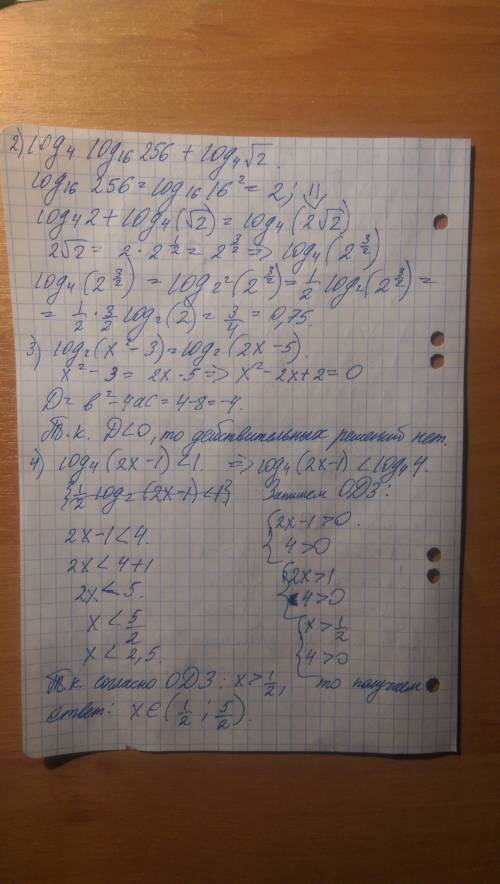 2) log₄ log₁₆ 256 + log₄√2.
log₁₆ 256 = log₁₆ 16² = 2; ⇓
log₄ 2 + log₄(√2) = log₄(2√2)
2√2 = 2 · 2^(1/2) = 2^(3/2) => log₄(2^(3/2))
log₄(2^(3/2)) = log₂²(2^(3/2)) = 1/2 log₂(2^(3/2)) =
= 1/2 · 3/2 log₂(2) = 3/4 = 0,75.
3) log₂(x² - 3) = log₂(2x - 5).
x² - 3 = 2x - 5 => x² - 2x + 2 = 0
D = b² - 4ac = 4 - 8 = -4.
Т.к. D < 0, то действительных решений нет.
4) log₄(2x - 1) < 1. => log₄(2x - 1) < log₄ 4.
{1/2 log₂(2x - 1) < 1} Запишем ОДЗ:
2x - 1 < 4. { 2x - 1 > 0.
2x < 4 + 1 4 > 0
2x < 5. { 2x > 1
x < 5/2 4 > 0
x < 2,5. { x > 1/2
4 > 0
Т.к. согласно ОДЗ: x > 1/2, то получаем
ответ: x ∈ (1/2 ; 5/2).